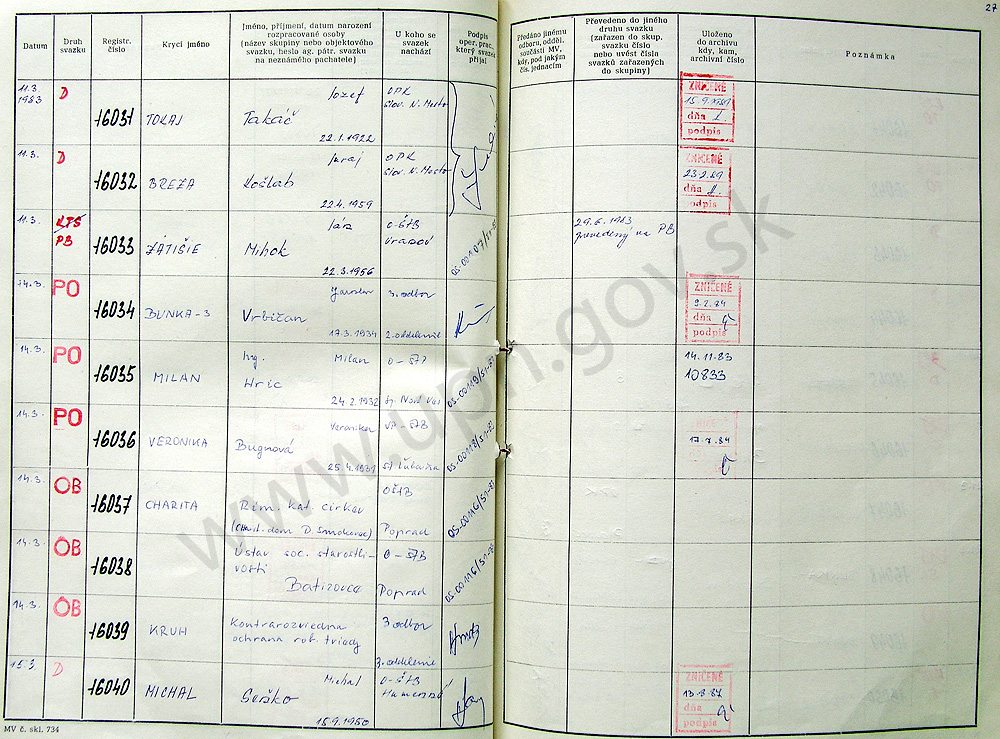 27
Datum
Druh svazku
Registr. číslo
Krycí jméno
Jméno, příjmení, datum narození rozpracované osoby (název skupiny nebo objektového svazku, heslo ag. pátr. svazku na neznámého pachatele)
U koho se svazek nachází
Podpis oper. prac., který svazek přijal
Předáno jinému odboru, odděl. součásti MV, kdy, pod jakým čís. jednacím
Převedeno do jiného druhu svazku (zařazen do skup. svazku číslo nebo uvést čísla svazků zařazených do skupiny)
Uloženo do archivu kdy, kam, archivní číslo
Poznámka
11.3. 1983 D 16031 TOKAJ Jozef Takáč 22.1.1922 OPK Slov. N. Mesto ZNIČENÉ dňa podpis
11.3. D 16032 BREZA Juraj Košlab 22.4.1959 OPK Slov. N. Mesto ZNIČENÉ 23.2.89 dňa podpis
11.3. KTS PB 16033 ZÁTIŠIE Ján Mihok 22.3.1956 O-ŠtB Vranov 29.6.1983 prevedený na PB
14.3. PO 16034 BUNKA-3 Jaroslav Vrbičan 17.3.1934 3. odbor 2. oddelenie ZNIČENÉ 9.2.84 dňa podpis
14.3. PO 16035 MILAN Ing. Milan Hric 24.2.1932 Sp. Nová Ves 14.11.83 10833
14.3. PO 16036 VERONIKA Veronika Bugnová 25.4.1931 St. Ľubovňa 17.7.84
14.3. OB 16037 CHARITA Rím. kat. cirkev (Charit. dom D Smokovec) OŠtB Poprad
14.3. OB 16038 Ústav soc. starostlivosti Batizovce O-ŠtB Poprad
14.3. OB 16039 KRUH Kontrarozviedna ochrana rob. triedy 3 odbor 3. oddelenie
15.3. D 16040 MICHAL Michal Serško 15.9.1950 O-ŠtB Humenné ZNIČENÉ dňa podpis
MV č. skl. 734
www.upn.gov.sk